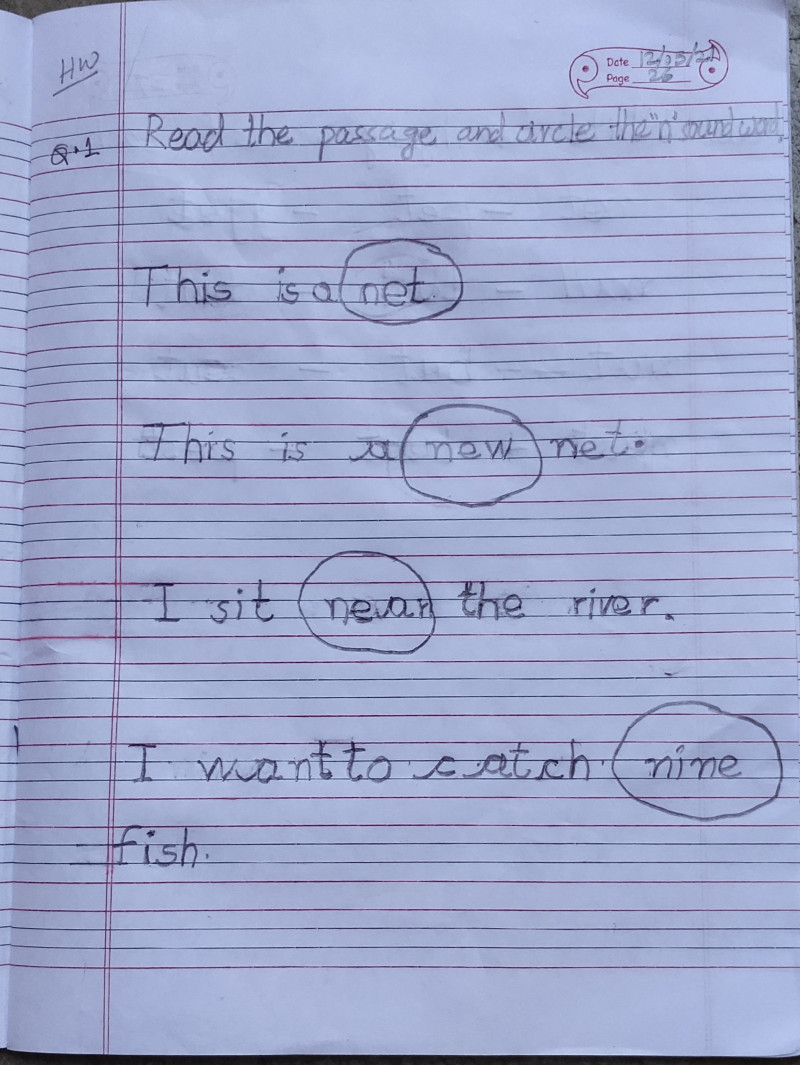 HW
Date 12/05/21
Page 26
Q.1 Read the passage and circle the "n" sound word.
This is a net.
This is a new net.
I sit near the river.
I want to catch nine
fish.